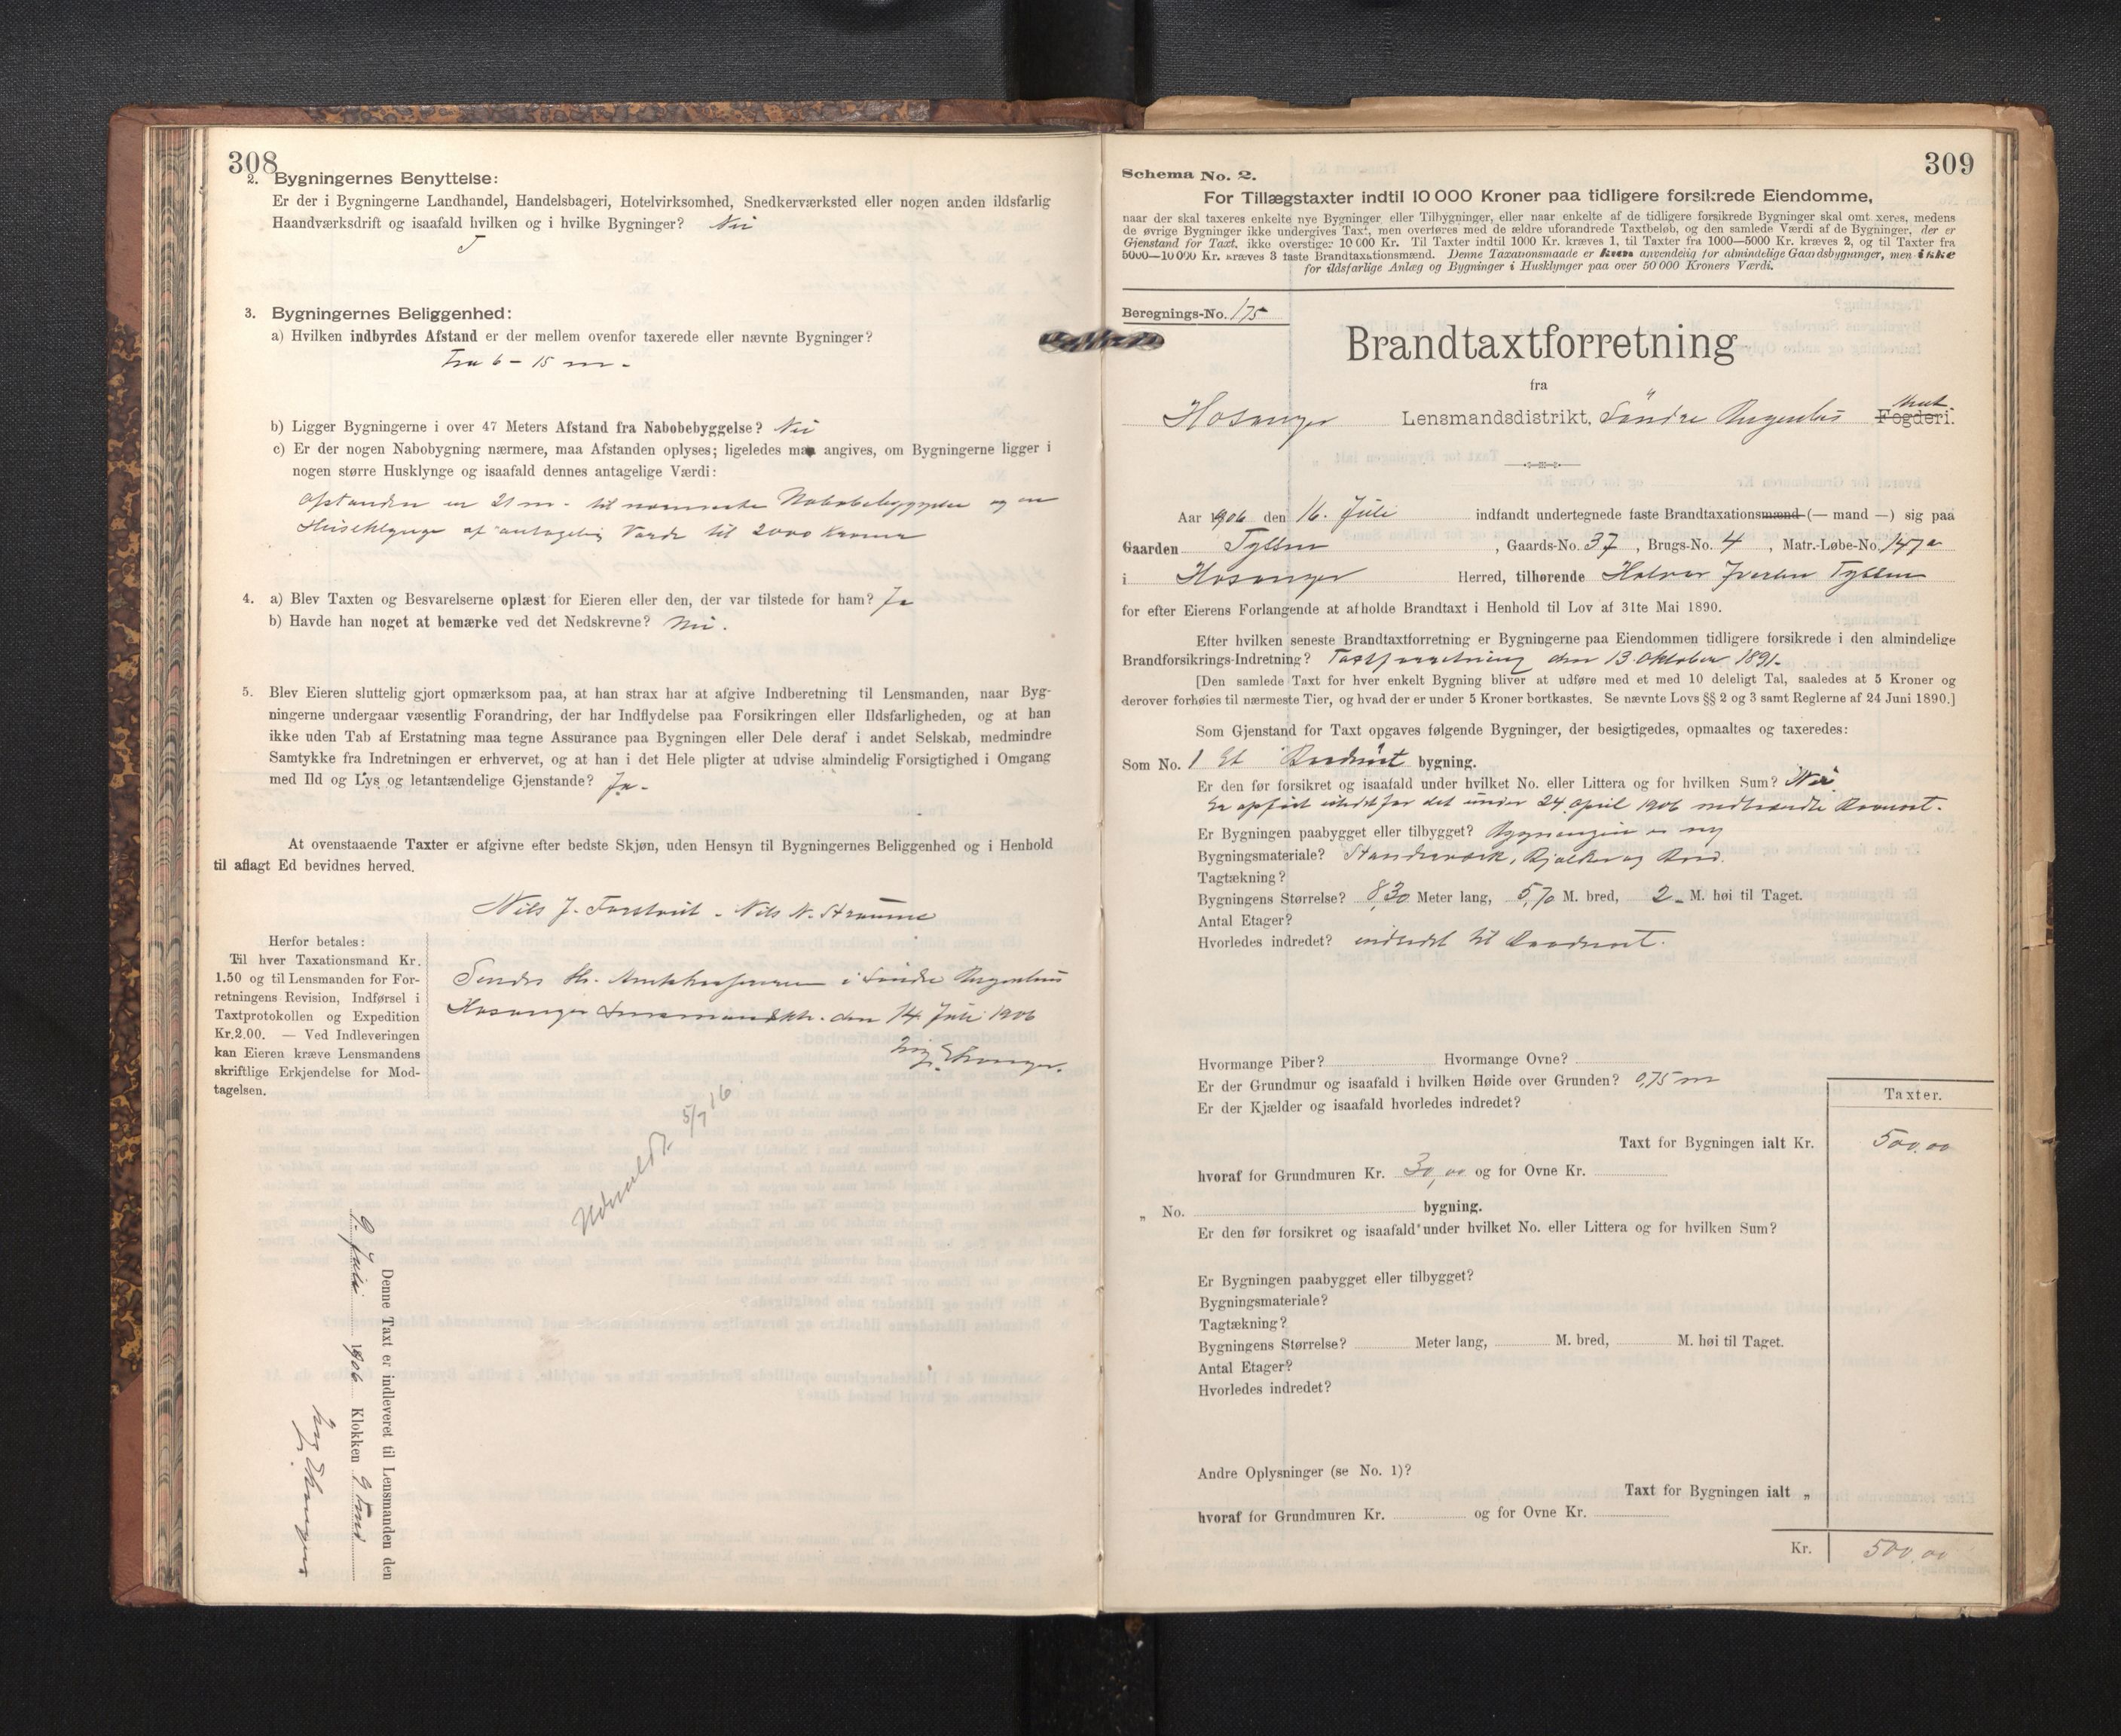 308
2. Bygningernes Benyttelse:
Er der i Bygningerne Landhandel, Handelsbageri, Hotelvirksomhed, Snedkerværksted eller nogen anden ildsfarlig
Haandværksdrift og isaafald hvilken og i hvilke Bygninger? Nei
3. Bygningernes Beliggenhed:
a) Hvilken indbyrdes Afstand er der mellem ovenfor taxerede eller nævnte Bygninger?
Fra 6 - 15 m.
b) Ligger Bygningerne i over 47 Meters Afstand fra Nabobebyggelse? Nei
c) Er der nogen Nabobygning nærmere, maa Afstanden oplyses; ligeledes maa angives, om Bygningerne ligger i
nogen større Husklynge og isaafald dennes antagelige Værdi:
Afstanden er 21 m. til nærmeste Nabobebyggelse og en
Huseklynge af antagelig Værdi til 2000 Kroner
4. a) Blev Taxten og Besvarelserne oplæst for Eieren eller den, der var tilstede for ham? Ja
b) Havde han noget at bemærke ved det Nedskrevne? Nei.
5. Blev Eieren sluttelig gjort opmærksom paa, at han strax har at afgive Indberetning til Lensmanden, naar Byg-
ningerne undergaar væsentlig Forandring, der har Indflydelse paa Forsikringen eller Ildsfarligheden, og at han
ikke uden Tab af Erstatning maa tegne Assurance paa Bygningen eller Dele deraf i andet Selskab, medmindre
Samtykke fra Indretningen er erhvervet, og at han i det Hele pligter at udvise almindelig Forsigtighed i Omgang
med Ild og Lys og letantændelige Gjenstande? Ja.
At ovenstaaende Taxter er afgivne efter bedste Skjøn, uden Hensyn til Bygningernes Beliggenhed og i Henhold
til aflagt Ed bevidnes herved.
Nils J. Nils N. Straume
Herfor betales:
Til hver Taxationsmand Kr.
1.50 og til Lensmanden for For-
retningens Revision, Indførsel i
Taxtprotokollen og Expedition
Kr.2.00. — Ved Indleveringen
kan Eieren kræve Lensmandens
skriftlige Erkjendelse for Mod-
tagelsen.
Sendes Hr. i Søndre Bergenhus
Hosanger Lensmandsktr. den 14 Juli 1906
Udmeldt 5/7 16
Denne Taxt er indleveret til Lensmanden den
9. Juli 1906 Klokken 9 Fmd
309
Schema No. 2.
For Tillægstaxter indtil 10 000 Kroner paa tidligere forsikrede Eiendomme,
naar der skal taxeres enkelte nye Bygninger eller Tilbygninger, eller naar enkelte af de tidligere forsikrede Bygninger skal omt xeres, medens
de øvrige Bygninger ikke undergives Taxt, men overføres med de ældre uforandrede Taxtbeløb, og den samlede Værdi af de Bygninger, der er
Gjenstand for Taxt, ikke overstiger 10 000 Kr. Til Taxter indtil 1000 Kr. kræves 1, til Taxter fra 1000—5000 Kr. kræves 2, og til Taxter fra
5000—10 000 Kr. kræves 3 faste Brandtaxationsmænd. Denne Taxationsmaade er kun anvendelig for almindelige Gaardsbygninger, men ikke
for ildsfarlige Anlæg og Bygninger i Husklynger paa over 50 000 Kroners Værdi.
Beregnings-No. 175
Brandtaxtforretning
fra
Hosanger Lensmandsdistrikt, Søndre Bergenhus Amt Fogderi.
Aar 1906 den 16. Juli indfandt undertegnede faste Brandtaxationsmænd (— mand —) sig paa
Gaarden Tyssen, Gaards-No. 37, Brugs-No. 4, Matr.-Løbe-No. 147a
i Hosanger Herred, tilhørende Halvor Iversen Tyssen
for efter Eierens Forlangende at afholde Brandtaxt i Henhold til Lov af 31te Mai 1890.
Efter hvilken seneste Brandtaxtforretning er Bygningerne paa Eiendommen tidligere forsikrede i den almindelige
Brandforsikrings-Indretning? Taxtforretning den 13. Oktober 1891.
[Den samlede Taxt for hver enkelt Bygning bliver at udføre med et med 10 deleligt Tal, saaledes at 5 Kroner og
derover forhøies til nærmeste Tier, og hvad der er under 5 Kroner bortkastes. Se nævnte Lovs §§ 2 og 3 samt Reglerne af 24 Juni 1890.]
Som Gjenstand for Taxt opgaves følgende Bygninger, der besigtigedes, opmaaltes og taxeredes:
Som No. 1 Et bygning.
Er den før forsikret og isaafald under hvilket No. eller Littera og for hvilken Sum? Nei.
Er opført istedetfor det under 24. April 1906 nedbrændte
Er Bygningen paabygget eller tilbygget? Bygningen er ny
Bygningsmateriale? Standerværk, Bjælker og Bord.
Tagtækning?
Bygningens Størrelse? 8,30 Meter lang, 5,70 M. bred, 2 M. høi til Taget.
Antal Etager?
Hvorledes indredet? indredet til
Hvormange Piber? Hvormange Ovne?
Er der Grundmur og isaafald i hvilken Høide over Grunden? 0,75 m
Er der Kjælder og isaafald hvorledes indredet?
Taxter.
Taxt for Bygningen ialt Kr. 500.00
hvoraf for Grundmuren Kr. 30,00 og for Ovne Kr.
„ No. bygning.
Er den før forsikret og isaafald under hvilket No. eller Littera og for hvilken Sum?
Er Bygningen paabygget eller tilbygget?
Bygningsmateriale?
Tagtækning?
Bygningens Størrelse? Meter lang, M. bred, M. høi til Taget.
Antal Etager?
Hvorledes indredet?
Andre Oplysninger (se No. 1)?
Taxt for Bygningen ialt „
hvoraf for Grundmuren Kr. og for Ovne Kr.
Kr. 500.00